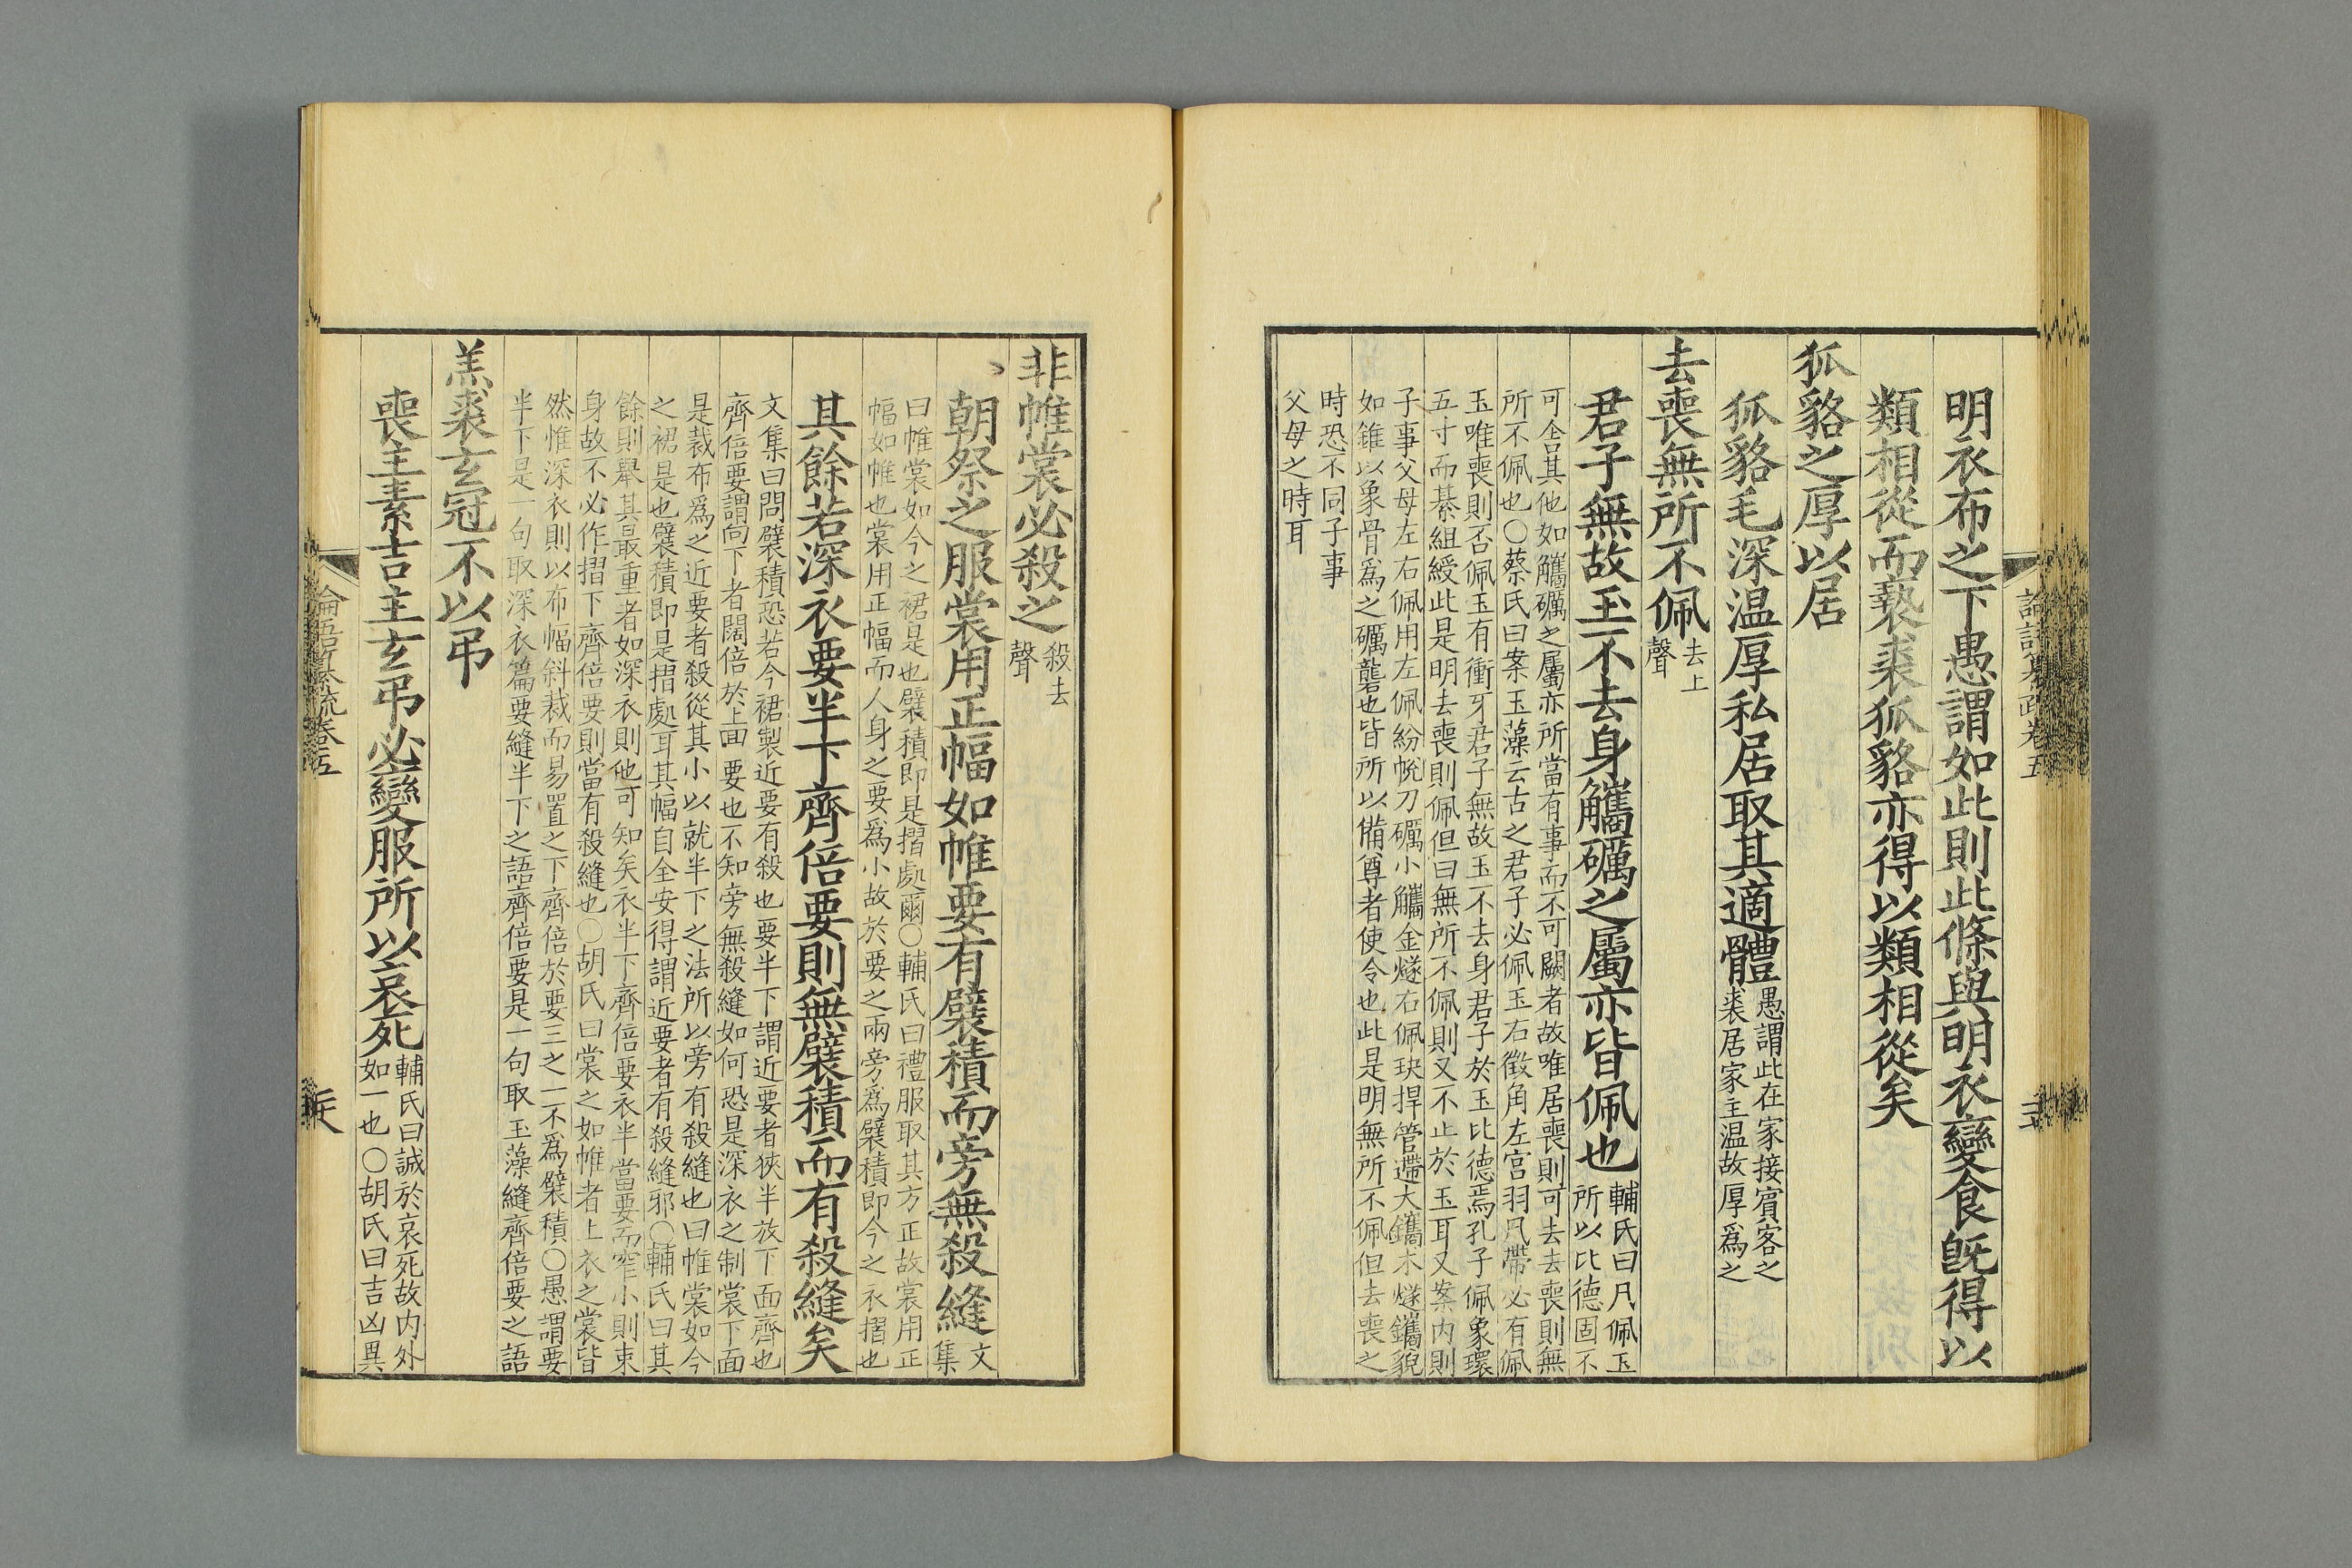 明衣布之下愚謂如此則此條與明衣變食旣得以
類相從而褻裘狐貉亦得以類相從矣
狐貉之厚以居
狐貉毛深温厚私居取其適體
愚謂此在家接賓客之
裘居家主温故厚爲之
去喪無所不佩
去上
聲
君子無故玉不去身觿礪之屬亦皆佩也
輔氏曰凡佩玉
所以比德固不
可舍其他如觿礪之屬亦所當有事而不可闕者故唯居喪則可去去喪則無
所不佩也○蔡氏曰案玉藻云古之君子必佩玉右徵角左宫羽凡帶必有佩
玉唯喪則否佩玉有衝牙君子無故玉不去身君子於玉比德焉孔子佩象環
五寸而綦組綬此是明去喪則佩但曰無所不佩則又不止於玉耳又案内則
子事父母左右佩用左佩紛帨刀礪小觿金燧右佩玦捍管遰大觿木燧觿貌
如錐以象骨爲之礪礱也皆所以備尊者使令也此是明無所不佩但去喪之
時恐不同子事
父母之時耳
非帷裳必殺之
殺去
聲
朝祭之服裳用正幅如帷要有襞積而旁無殺縫
文
集
曰帷裳如今之裙是也襞積即是摺處爾○輔氏曰禮服取其方正故裳用正
幅如帷也裳用正幅而人身之要爲小故於要之兩旁爲襞積即今之衣摺也
其餘若深衣要半下齊倍要則無襞積而有殺縫矣
文集曰問襞積恐若今裙製近要有殺也要半下謂近要者狹半放下面齊也
齊倍要謂向下者闊倍於上面要也不知旁無殺縫如何恐是深衣之制裳下面
是裁布爲之近要者殺從其小以就半下之法所以旁有殺縫也曰帷裳如今
之裙是也襞積即是摺處耳其幅自全安得謂近要者有殺縫邪○輔氏曰其
餘則舉其最重者如深衣則他可知矣衣半下齊倍要衣半當要而窄小則束
身故不必作摺下齊倍要則當有殺縫也○胡氏曰裳之如帷者上衣之裳皆
然惟深衣則以布幅斜裁而易置之下齊倍於要三之一不爲襞積○愚謂要
半下是一句取深衣篇要縫半下之語齊倍要是一句取玉藻縫齊倍要之語
羔裘玄冠不以弔
喪主素吉主玄弔必變服所以哀死
輔氏曰誠於哀死故内外
如一也○胡氏曰吉凶異
論語纂疏卷五